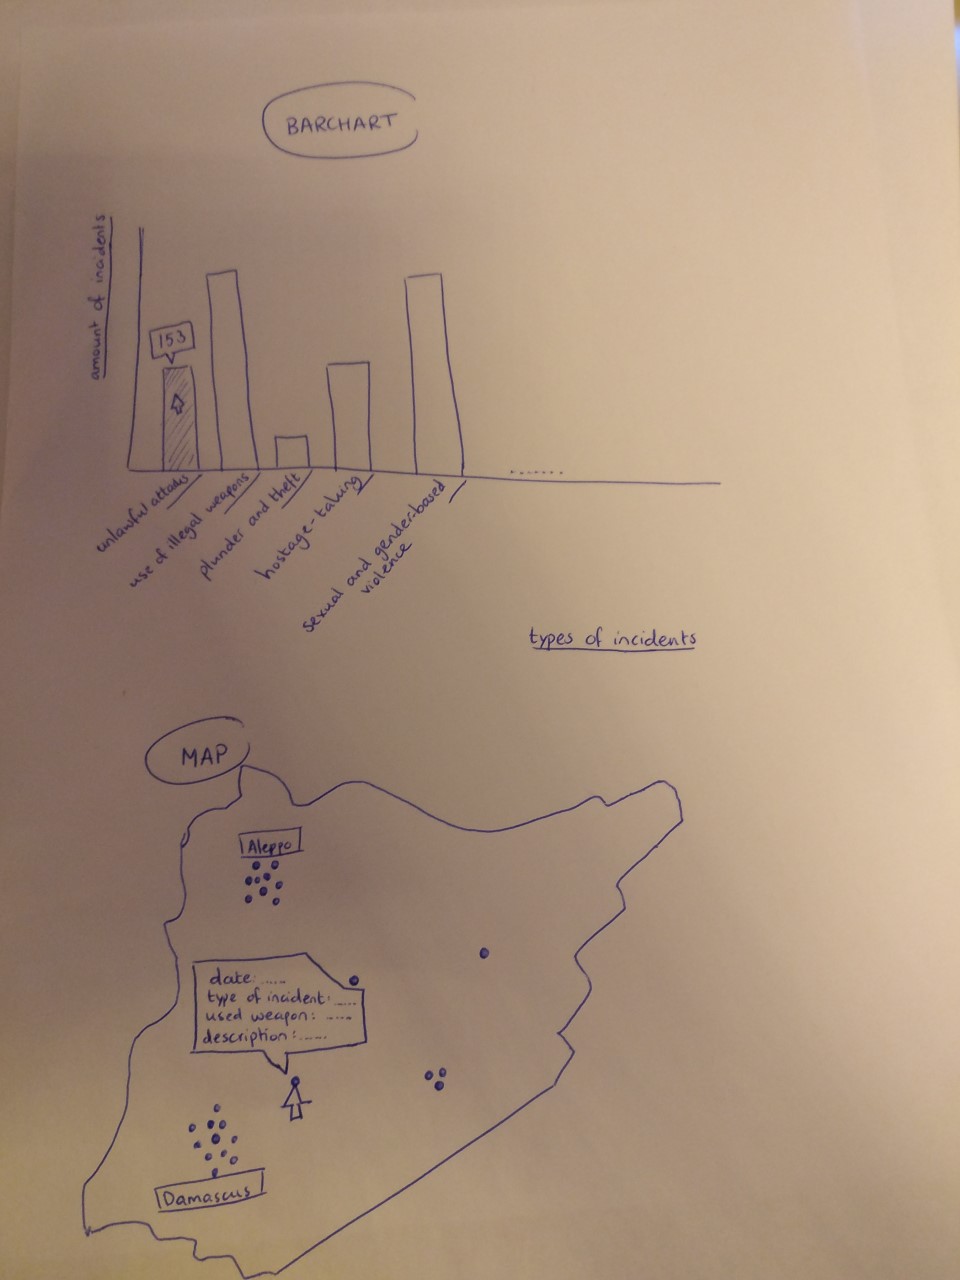 BARCHART
amount of incidents
153
unlawful attacks
use of illegal weapons
plunder and theft
hostage-taking
sexual and gender-based
violence
.......
types of incidents
MAP
Aleppo
date: .....
type of incident: .....
used weapon: .....
description: .....
Damascus